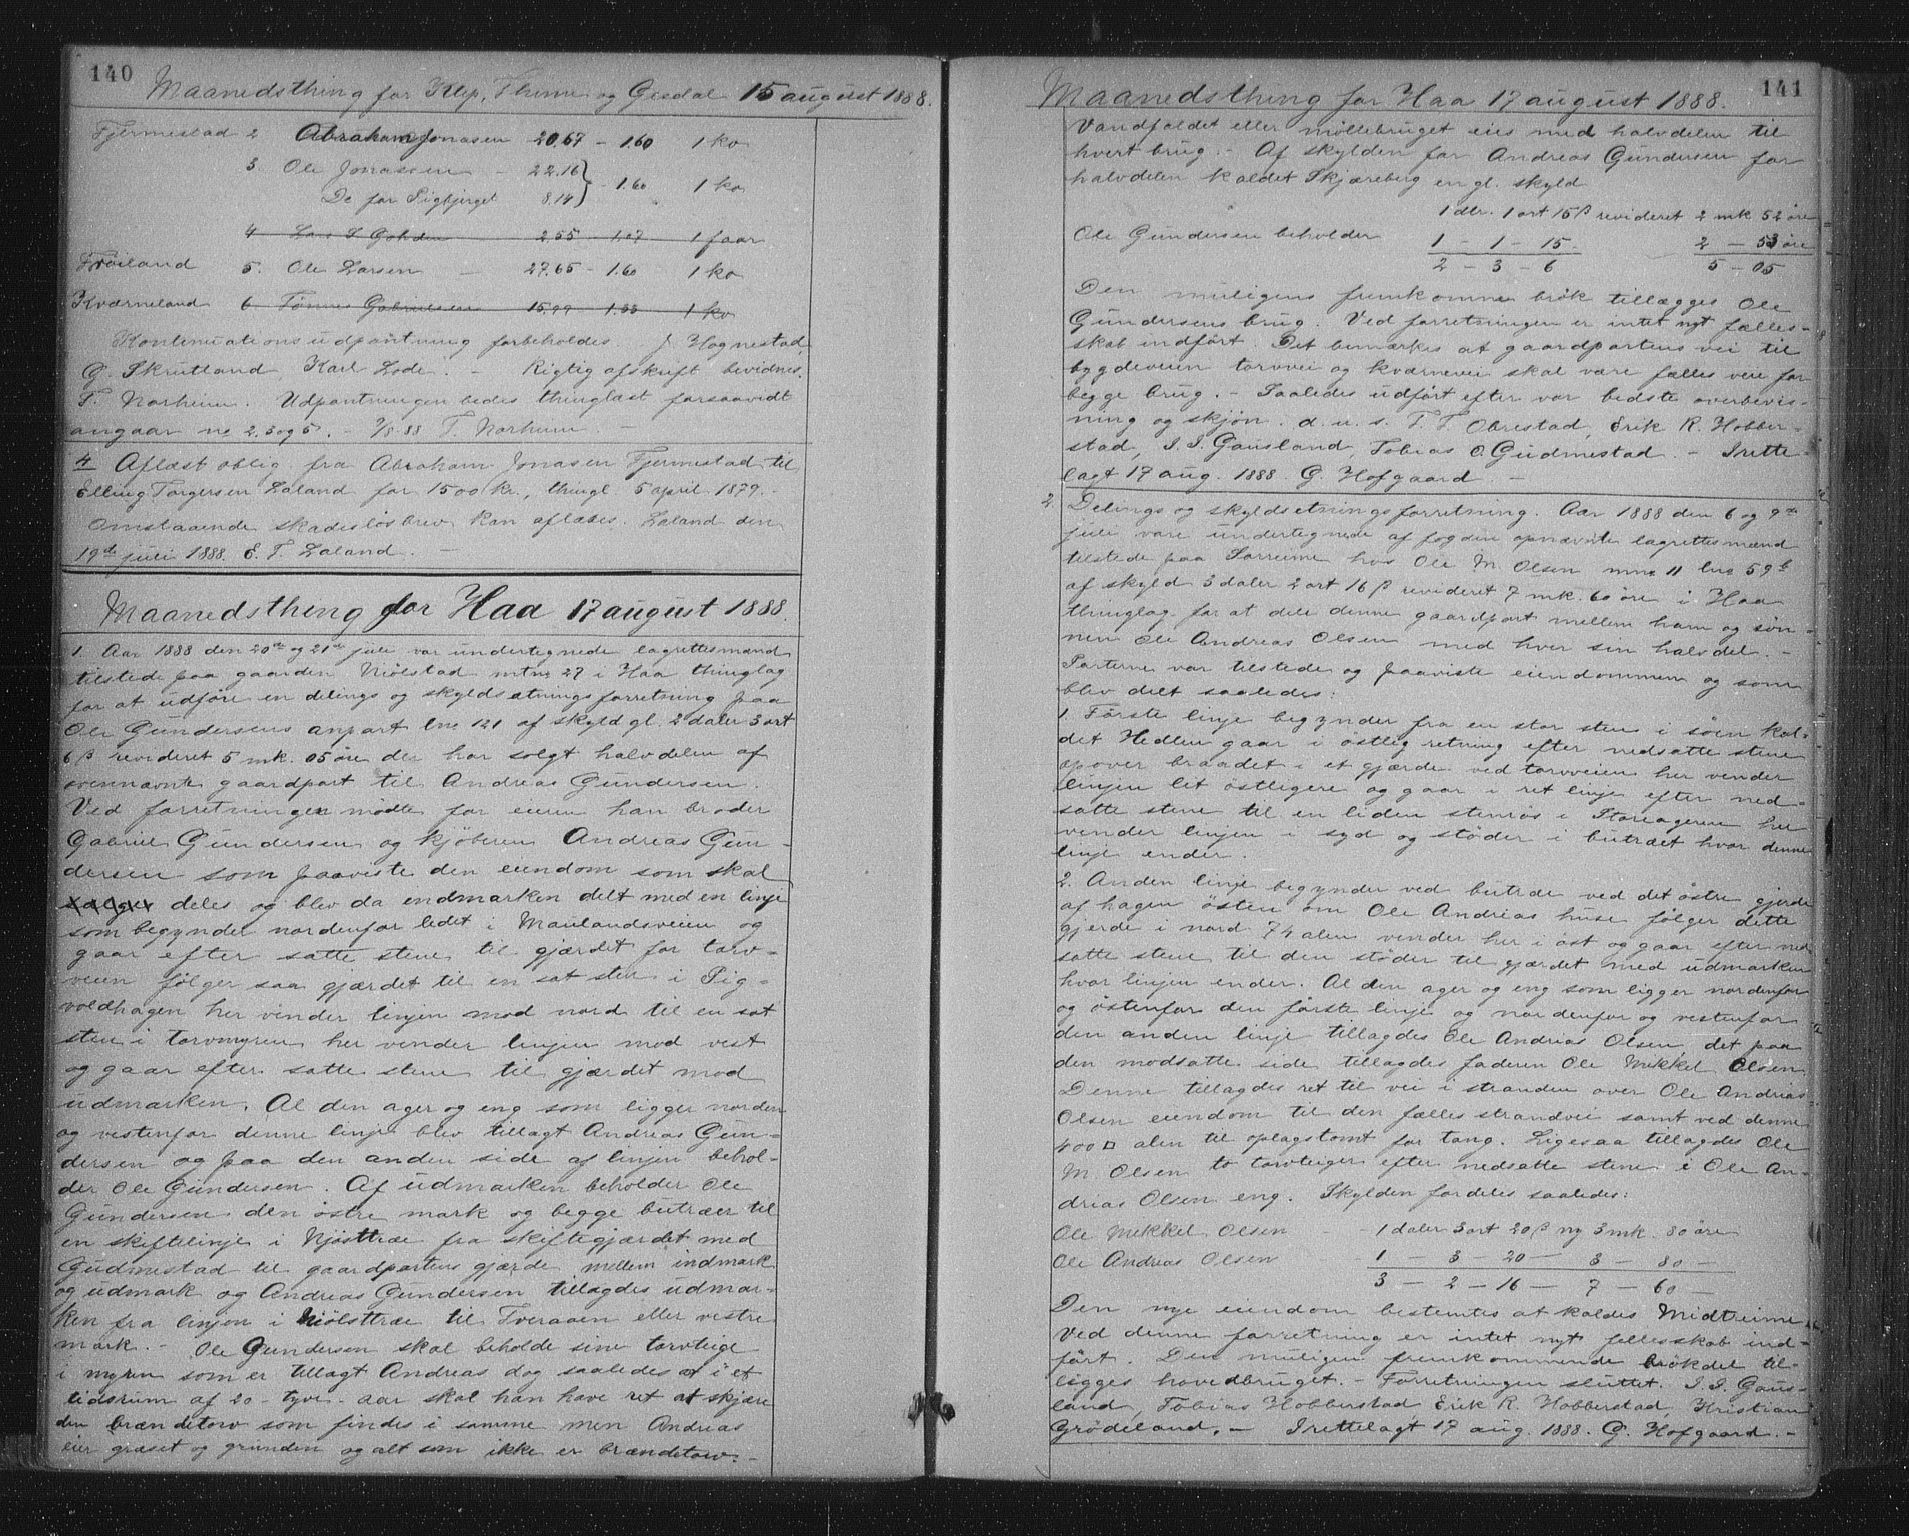 140
Maanedsthing for Klep, Thime og Gjesdal 15 august 1888.
Fjermestad 2 Abraham Jonasen 20,67 - 1.60 1 ko
3. Ole Jonassen - 22.16
De for Sigbjerget 8.14 } - 1.60 1 ko
4 Lars S 2.55 - 1.07 1 faar
Frøiland 5. Ole Larsen - 27.65 - 1.60 1 ko
Kværneland 6 Tønnes Gabrielsen 15.99 - 1.33 1 ko
Kontinuationsudpantning forbeholdes. J Hognestad,
G. Skrutland Karl Lode. - Rigtig afskrift bevidnes.
T. Norheim. Udpantningen bedes thinglæst forsaavidt
angaar no 2, 3 og 5. - 7/8-88 T. Norheim -
4 Aflæst oblig. fra Abraham Jonasen Fjermestad til
Elling Torgersen Laland for 1500 kr., thingl 5 april 1879.
Omstaaende skadesløsbrev kan aflæses. Laland den
19de juli 1888. E. T. Laland. -
Maanedsthing for Haa 17 august 1888.
1. Aar 1888 den 20de og 21de juli var undertegnede lagrettesmænd
tilstede paa gaarden Niølstad mtno 27 i Haa thinglag
for at udføre en delings og skyldsætningsforretning paa
Ole Gundersens anpart lno 121 af skyld gl. 2 daler 3 ort
6 β revideret 5 mk. 05 øre der har solgt halvdelen af
ovennævnte gaardpart til Andreas Gundersen.
Ved forretningen mødte for eieren han broder
Gabriel Gundersen og kjøberen Andreas Gun-
dersen som paaviste den eiendom som skal
deles og blev da indmarken delt med en linje
som begynder nordenfor ledet i Maulandsveien og
gaar efter satte stene til gjærdet for torv-
veien følger saa gjærdet til en sat sten i Sig-
voldhagen her vender linjen mod nord til en sat
sten i torvmyren her vender linjen mod vest
og gaar efter satte stene til gjærdet mod
udmarken. Al den ager og eng som ligger norden
og vestenfor denne linje blev tillagt Andreas Gun-
dersen og paa den anden side af linjen behol-
der Ole Gundersen. Af udmarken beholder Ole
Gundersen den østre mark og begge butræer til
en skiftelinje i Njøsttræe fra skiftegjærdet med
Gudmestad til gaardpartens gjærde mellem indmark
og udmark og Andreas Gundersen tillagdes udmar-
ken fra linjen i Niølsttræe til Tveraaen eller vestre
mark. - Ole Gundersen skal beholde sine torvteige
i myren som er tillagt Andreas dog saaledes at i et
tidsrum af 20 - tyve - aar skal han have ret at skjære
den brændetorv som findes i samme men Andreas
eier græset og grunden og alt som ikke er brændetorv. -
141
Maanedsthing for Haa 17 august 1888.
Vandfaldet eller møllebruget eies med halvdelen til
hvert brug. - Af skylden for Andreas Gundersen for
halvdelen kaldet Skjæreberg en gl. skyld
1 dlr. 1 ort 15 β revideret 2 mk 52 øre
Ole Gundersen beholder 1 - 1 - 15 2 - 53 øre
2 - 3 - 6 5 - 05
Den muligens fremkomne brøk tillægges Ole
Gundersens brug. Ved forretningen er intet nyt fælles-
skab indført. Det bemærkes at gaardpartens vei til
bygdeveien torvvei og kværnevei skal være fælles veie for
begge brug. - Saaledes udført efter vor bedste overbevis-
ning og skjøn. d. u. s. T. T. Obrestad, Erik R. Hobber-
stad, I. I. Gausland, Tobias O. Gudmestad. - Irette-
lagt 17 aug. 1888 G. Hofgaard -
2 Delings og skyldsetningsforretning. Aar 1888 den 6 og 9de
juli vare undertegnede af fogden opnævnte lagrettesmænd
tilstede paa Sørreime hos Ole M. Olsen mno 11 lno 59b
af skyld 3 daler 2 ort 16 β revideret 7 mk. 60 øre i Haa
thinglag for at dele denne gaardpart mellem ham og søn-
nen Ole Andreas Olsen med hver sin halvdel. -
Parterne var tilstede og paaviste eiendommen og som
blev delt saaledes:
1. Første linje begynder fra en stor sten i søen kal-
det Hedlen gaar i østlig retning efter nedsatte stene
opover braadet i et gjærde ved torvveien her vender
linjen lit østligere og gaar i ret linje efter ned-
satte stene til en liden stenrøs i Storeagerene her
vender linjen i syd og støder i butræet hvor denne
linje ender.
2. Anden linje begynder ved butræe ved det østre gjerde
af hagen østen om Ole Andreas huse følger dette
gjerde i nord 74 alen vender her i øst og gaar efter ned
satte stene til den støder til gjærdet med udmarken
hvor linjen ender. Al den ager og eng som ligger nordenfor
og østenfor den første linje og nordenfor og vestenfor
den anden linje tillagdes Ole Andreas Olsen, det paa
den modsatte side tillagdes faderen Ole Mekkel Olsen
Denne tillagdes ret til vei i stranden over Ole Andreas
Olsen eiendom til den fælles strandvei samt ved denne
400 □ alen til oplagstomt for tang. Ligesaa tillagdes Ole
M. Olsen to torvteiger efter nedsatte stene i Ole An-
dreas Olsen eng. Skylden fordeles saaledes:
Ole Mekkel Olsen - 1 daler 3 ort 20 β ny 3 mk. 80 øre
Ole Andreas Olsen 1 - 3 - 20 - 3 - 80 -
3 - 2 - 16 - 7 - 60 -
Den nye eiendom bestemtes at kaldes Midtreime
Ved denne forretning er intet nyt fellesskab ind-
ført. Den muligen fremkommende brøkdel til-
ligges hovedbruget. - Forretningen sluttet. I. I. Gaus-
land, Tobias Hobberstad Erik R. Hobberstad Kristian
Grødeland. - Irettelagt 17 aug. 1888. G. Hofgaard. -